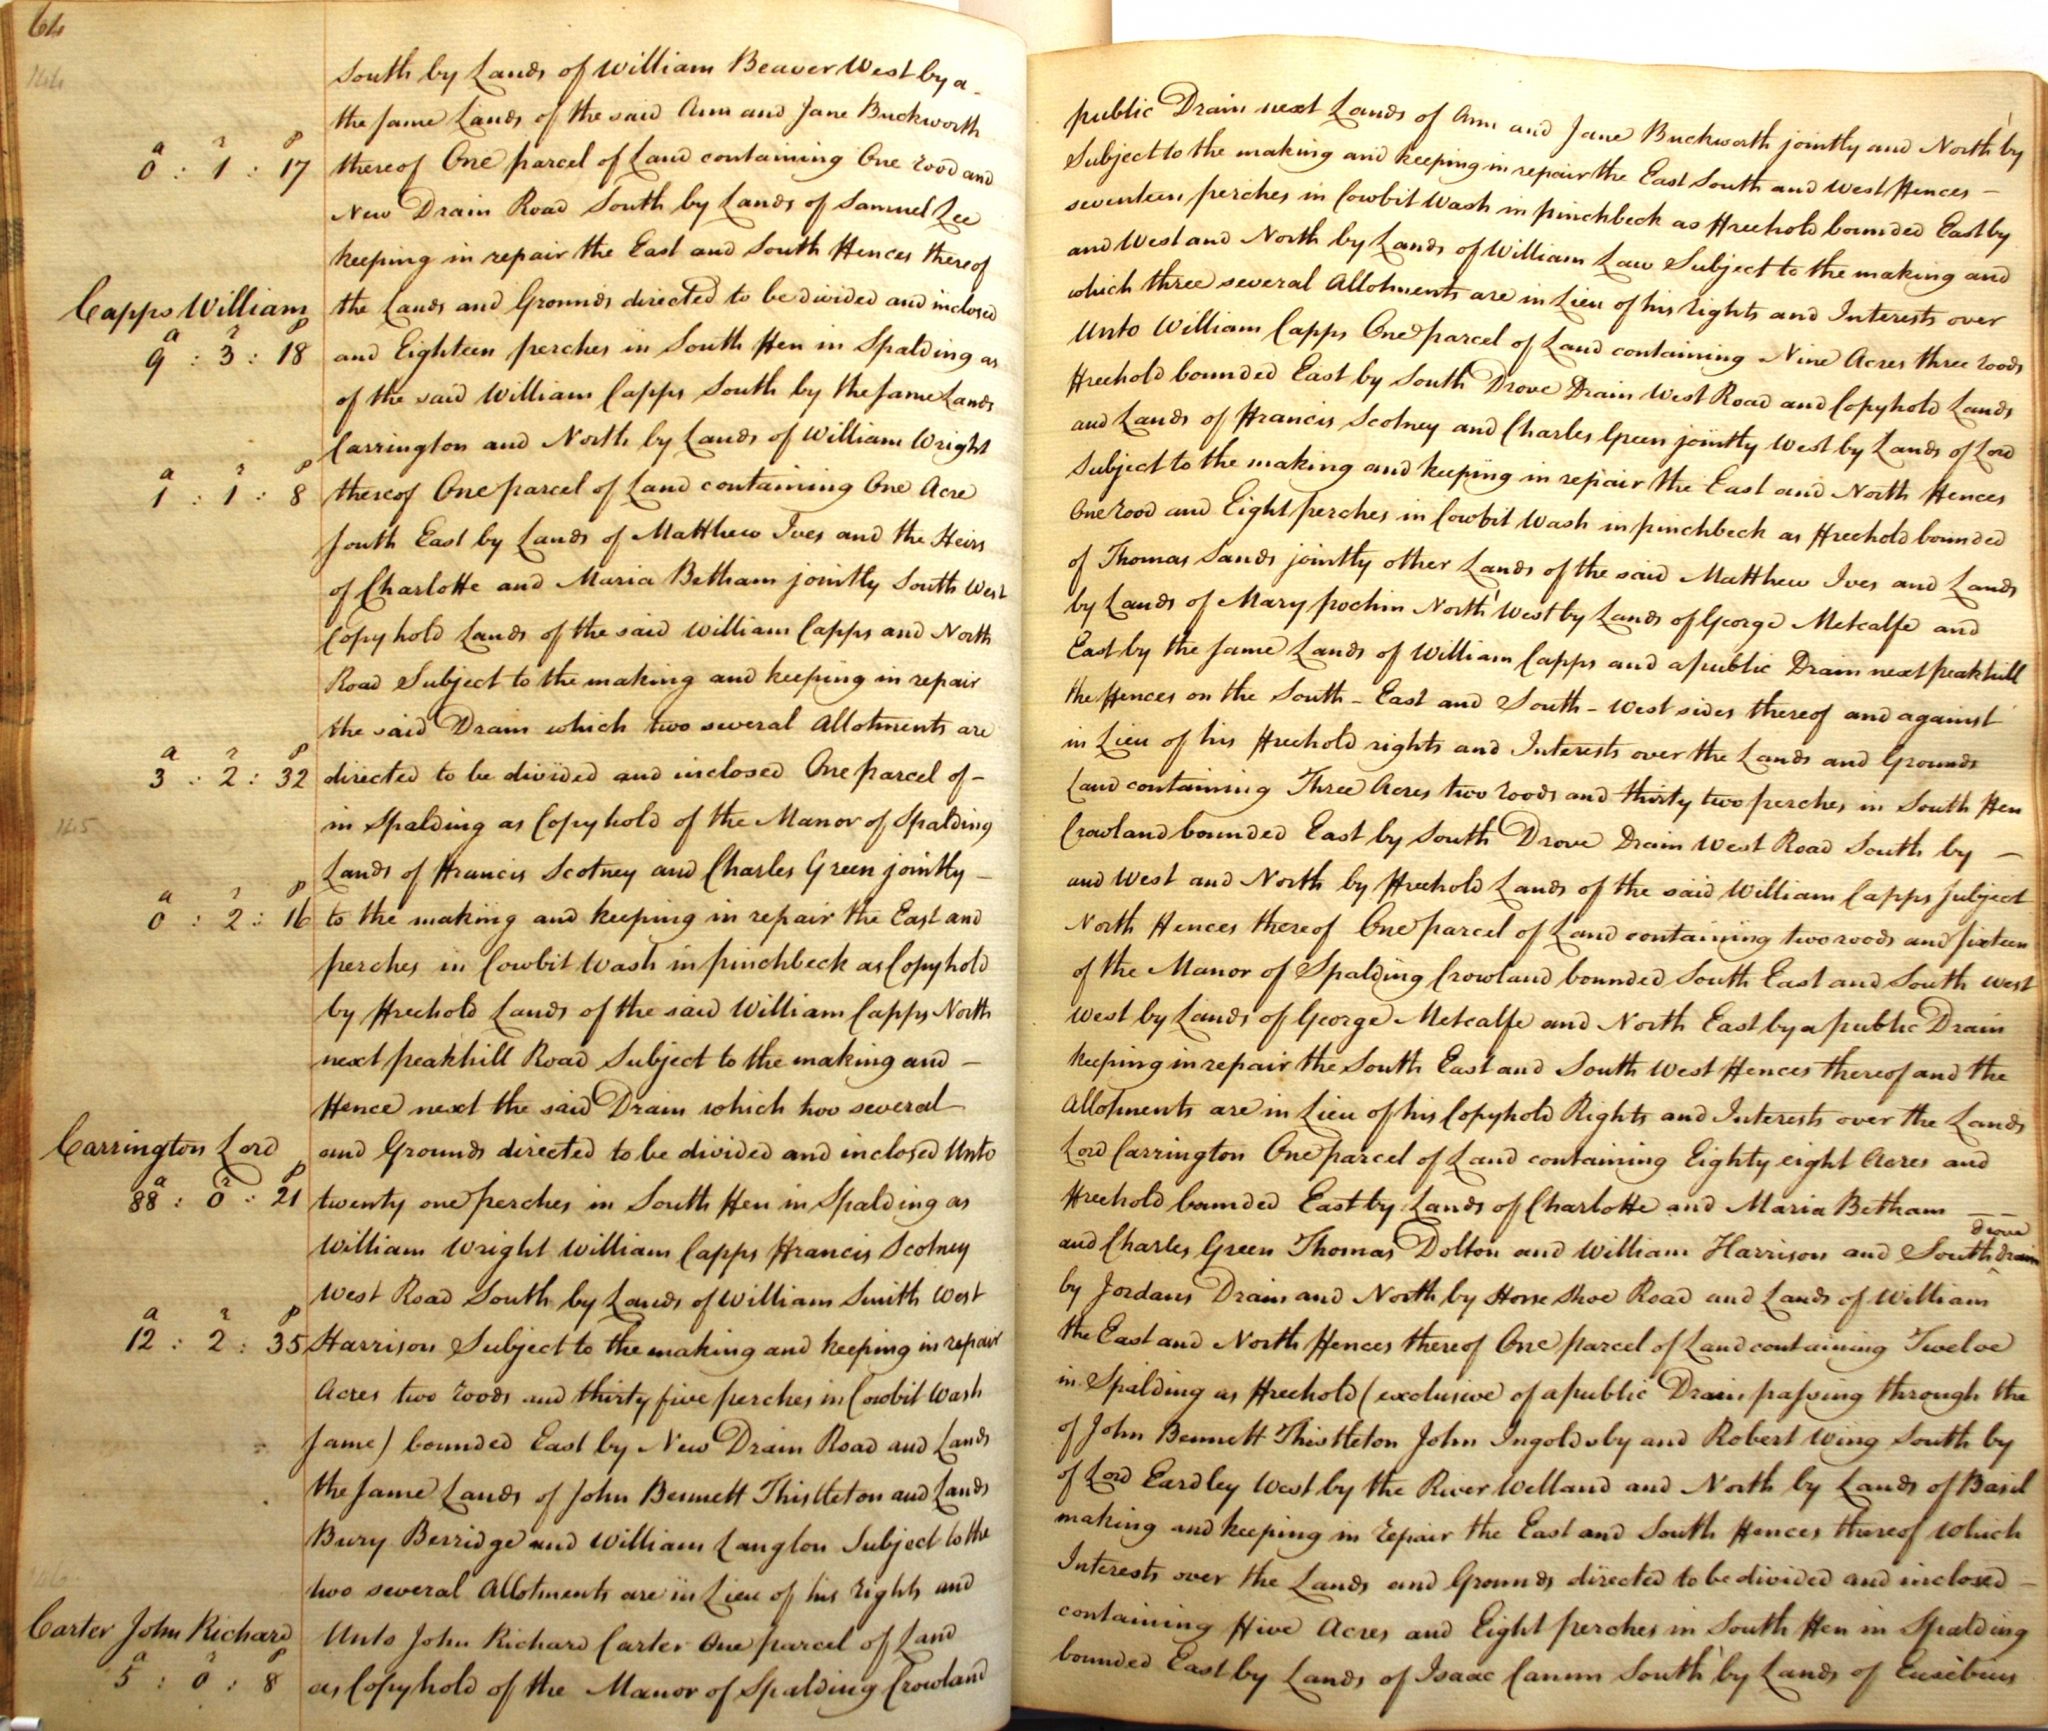 64
144
South by Lands of William Beaver West by a
public Drain next Lands of Ann and Jane Buckworth jointly and North by
the same Lands of the said Ann and Jane Buckworth
Subject to the making and keeping in repair the East South and West Fences –
a r p
0 : 1 : 17
thereof One parcel of Land containing One rood and
seventeen perches in Cowbit Wash in pinchbeck as Freehold bounded East by
New Drain Road South by Lands of Samuel Lee
and West and North by Lands of William Law Subject to the making and
keeping in repair the East and South Fences thereof
which three several Allotments are in Lieu of his rights and Interests over
Capps William
the Lands and Grounds directed to be divided and inclosed
Unto William Capps One parcel of Land containing Nine Acres three roods
a r p
9 : 3 : 18
and Eighteen perches in South Fen in Spalding as
Freehold bounded East by South Drove Drain West Road and Copyhold Lands
of the said William Capps South by the same Lands
and Lands of Francis Scotney and Charles Green jointly West by Lands of Lord
Carrington and North by Lands of William Wright
Subject to the making and keeping in repair the East and North Fences
a r p
1 : 1 : 8
thereof One parcel of Land containing One Acre
One rood and Eight perches in Cowbit Wash in pinchbeck as Freehold bounded
South East by Lands of Matthew Ives and the Heirs
of Thomas Sands jointly other Lands of the said Matthew Ives and Lands
of Charlotte and Maria Betham jointly South West
by Lands of Mary pochin North West by Lands of George Metcalfe and
Copyhold Lands of the said William Capps and North
East by the same Lands of William Capps and a public Drain next peakhill
Road Subject to the making and keeping in repair
the Fences on the South – East and South – West sides thereof and against
the said Drain which two several Allotments are
in Lieu of his Freehold rights and Interests over the Lands and Grounds
a r p
3 : 2 : 32
directed to be divided and inclosed One parcel of –
Land containing Three Acres two roods and thirty two perches in South Fen
145
in Spalding as Copyhold of the Manor of Spalding
Crowland bounded East by South Drove Drain West Road South by –
Lands of Francis Scotney and Charles Green jointly –
and West and North by Freehold Lands of the said William Capps Subject
a r p
0 : 2 : 16
to the making and keeping in repair the East and
North Fences thereof One parcel of Land containing two roods and sixteen
perches in Cowbit Wash in pinchbeck as Copyhold
of the Manor of Spalding Crowland bounded South East and South West
by Freehold Lands of the said William Capps North
West by Lands of George Metcalfe and North East by a public Drain
next peakhill Road Subject to the making and –
keeping in repair the South East and South West Fences thereof and the
Fence next the said Drain which two several
Allotments are in Lieu of his Copyhold Rights and Interests over the Lands
Carrington Lord
and Grounds directed to be divided and inclosed Unto
Lord Carrington One parcel of Land containing Eighty eight Acres and
a r p
88 : 0 : 21
twenty one perches in South Fen in Spalding as
Freehold bounded East by Lands of Charlotte and Maria Betham –
William Wright William Capps Francis Scotney
drove
and Charles Green Thomas Dolton and William Harrison and South drain
West Road South by Lands of William Smith West
by Jordans Drain and North by Horse shoe Road and Lands of William
a r p
12 : 2 : 35
Harrison Subject to the making and keeping in repair
the East and North Fences thereof One parcel of Land containing Twelve
Acres two roods and thirty five perches in Cowbit Wash
in Spalding as Freehold (exclusive of a public Drain passing through the
same) bounded East by New Drain Road and Lands
of John Bennett Thistleton John Ingoldsby and Robert Wing South by
the same Lands of John Bennett Thistleton and Lands
of Lord Eardley West by the River Welland and North by Lands of Basil
Bury Berridge and William Langton Subject to the
making and keeping in repair the East and South Fences thereof which
two several Allotments are in Lieu of his rights and
Interests over the Lands and Grounds directed to be divided and inclosed –
Carter John Richard
Unto John Richard Carter One parcel of Land
containing Five Acres and Eight perches in South Fen in Spalding
a r p
5 : 0 : 8
as Copyhold of the Manor of Spalding Crowland
bounded East by Lands of Isaac Canum South by Lands of Eusebius